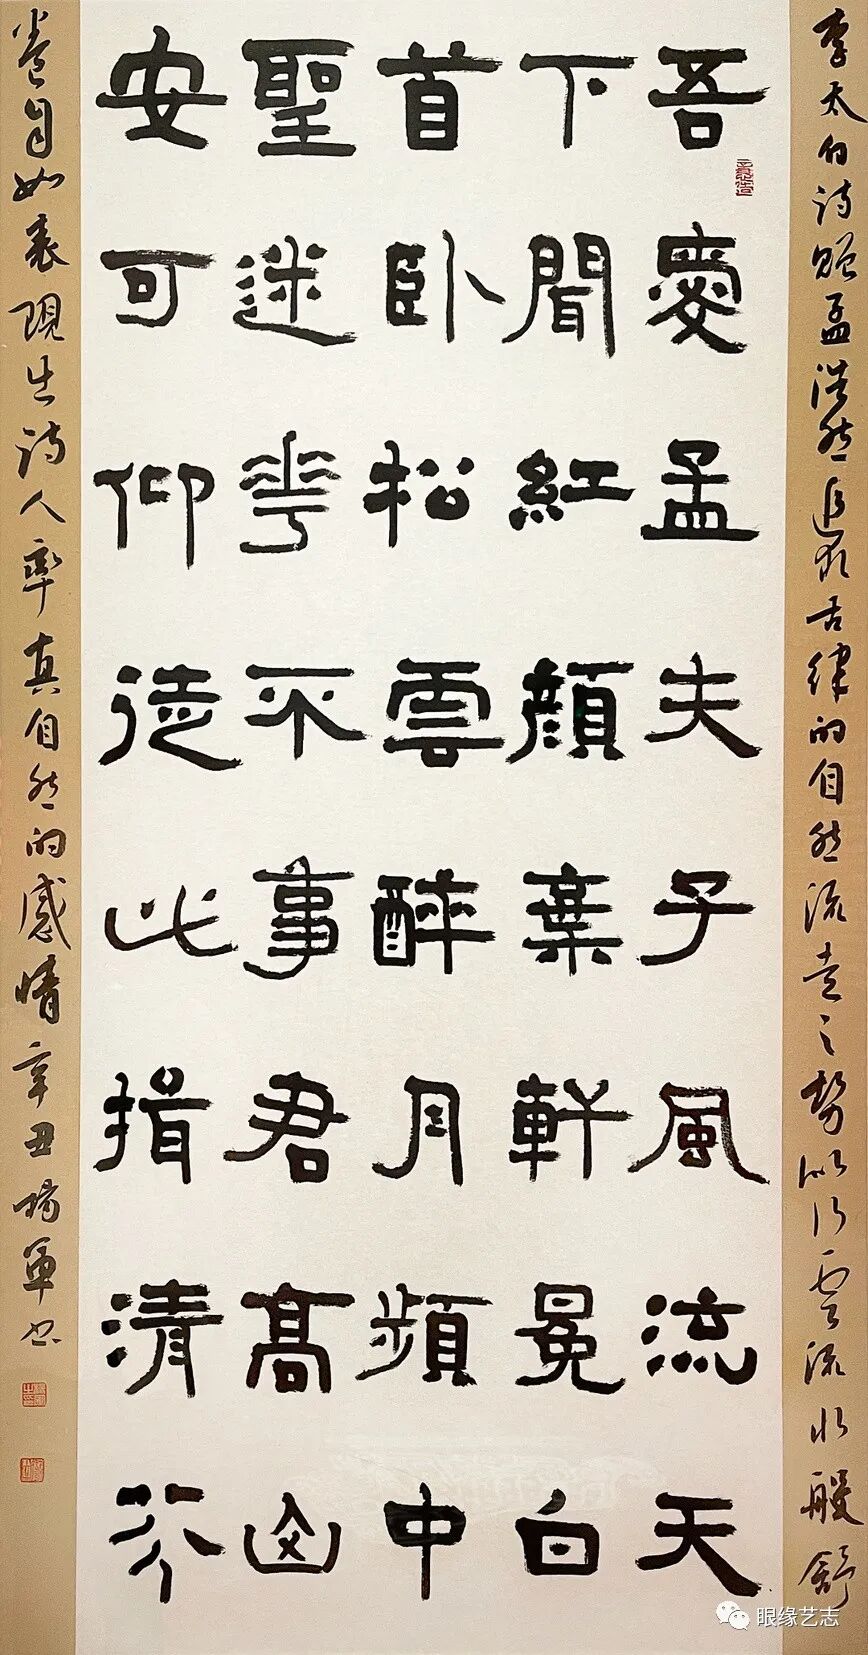 李太白诗赠孟浩然追求古律的自然流走之势似行雲流水般舒
吾愛孟夫子風流天
下聞紅顏棄軒冕白
首卧松雲醉月頻中
聖迷花不事君高山
安可仰徒此揖清芬
卷自如表现出诗人率真自然的感情辛丑杨軍书
眼缘艺志